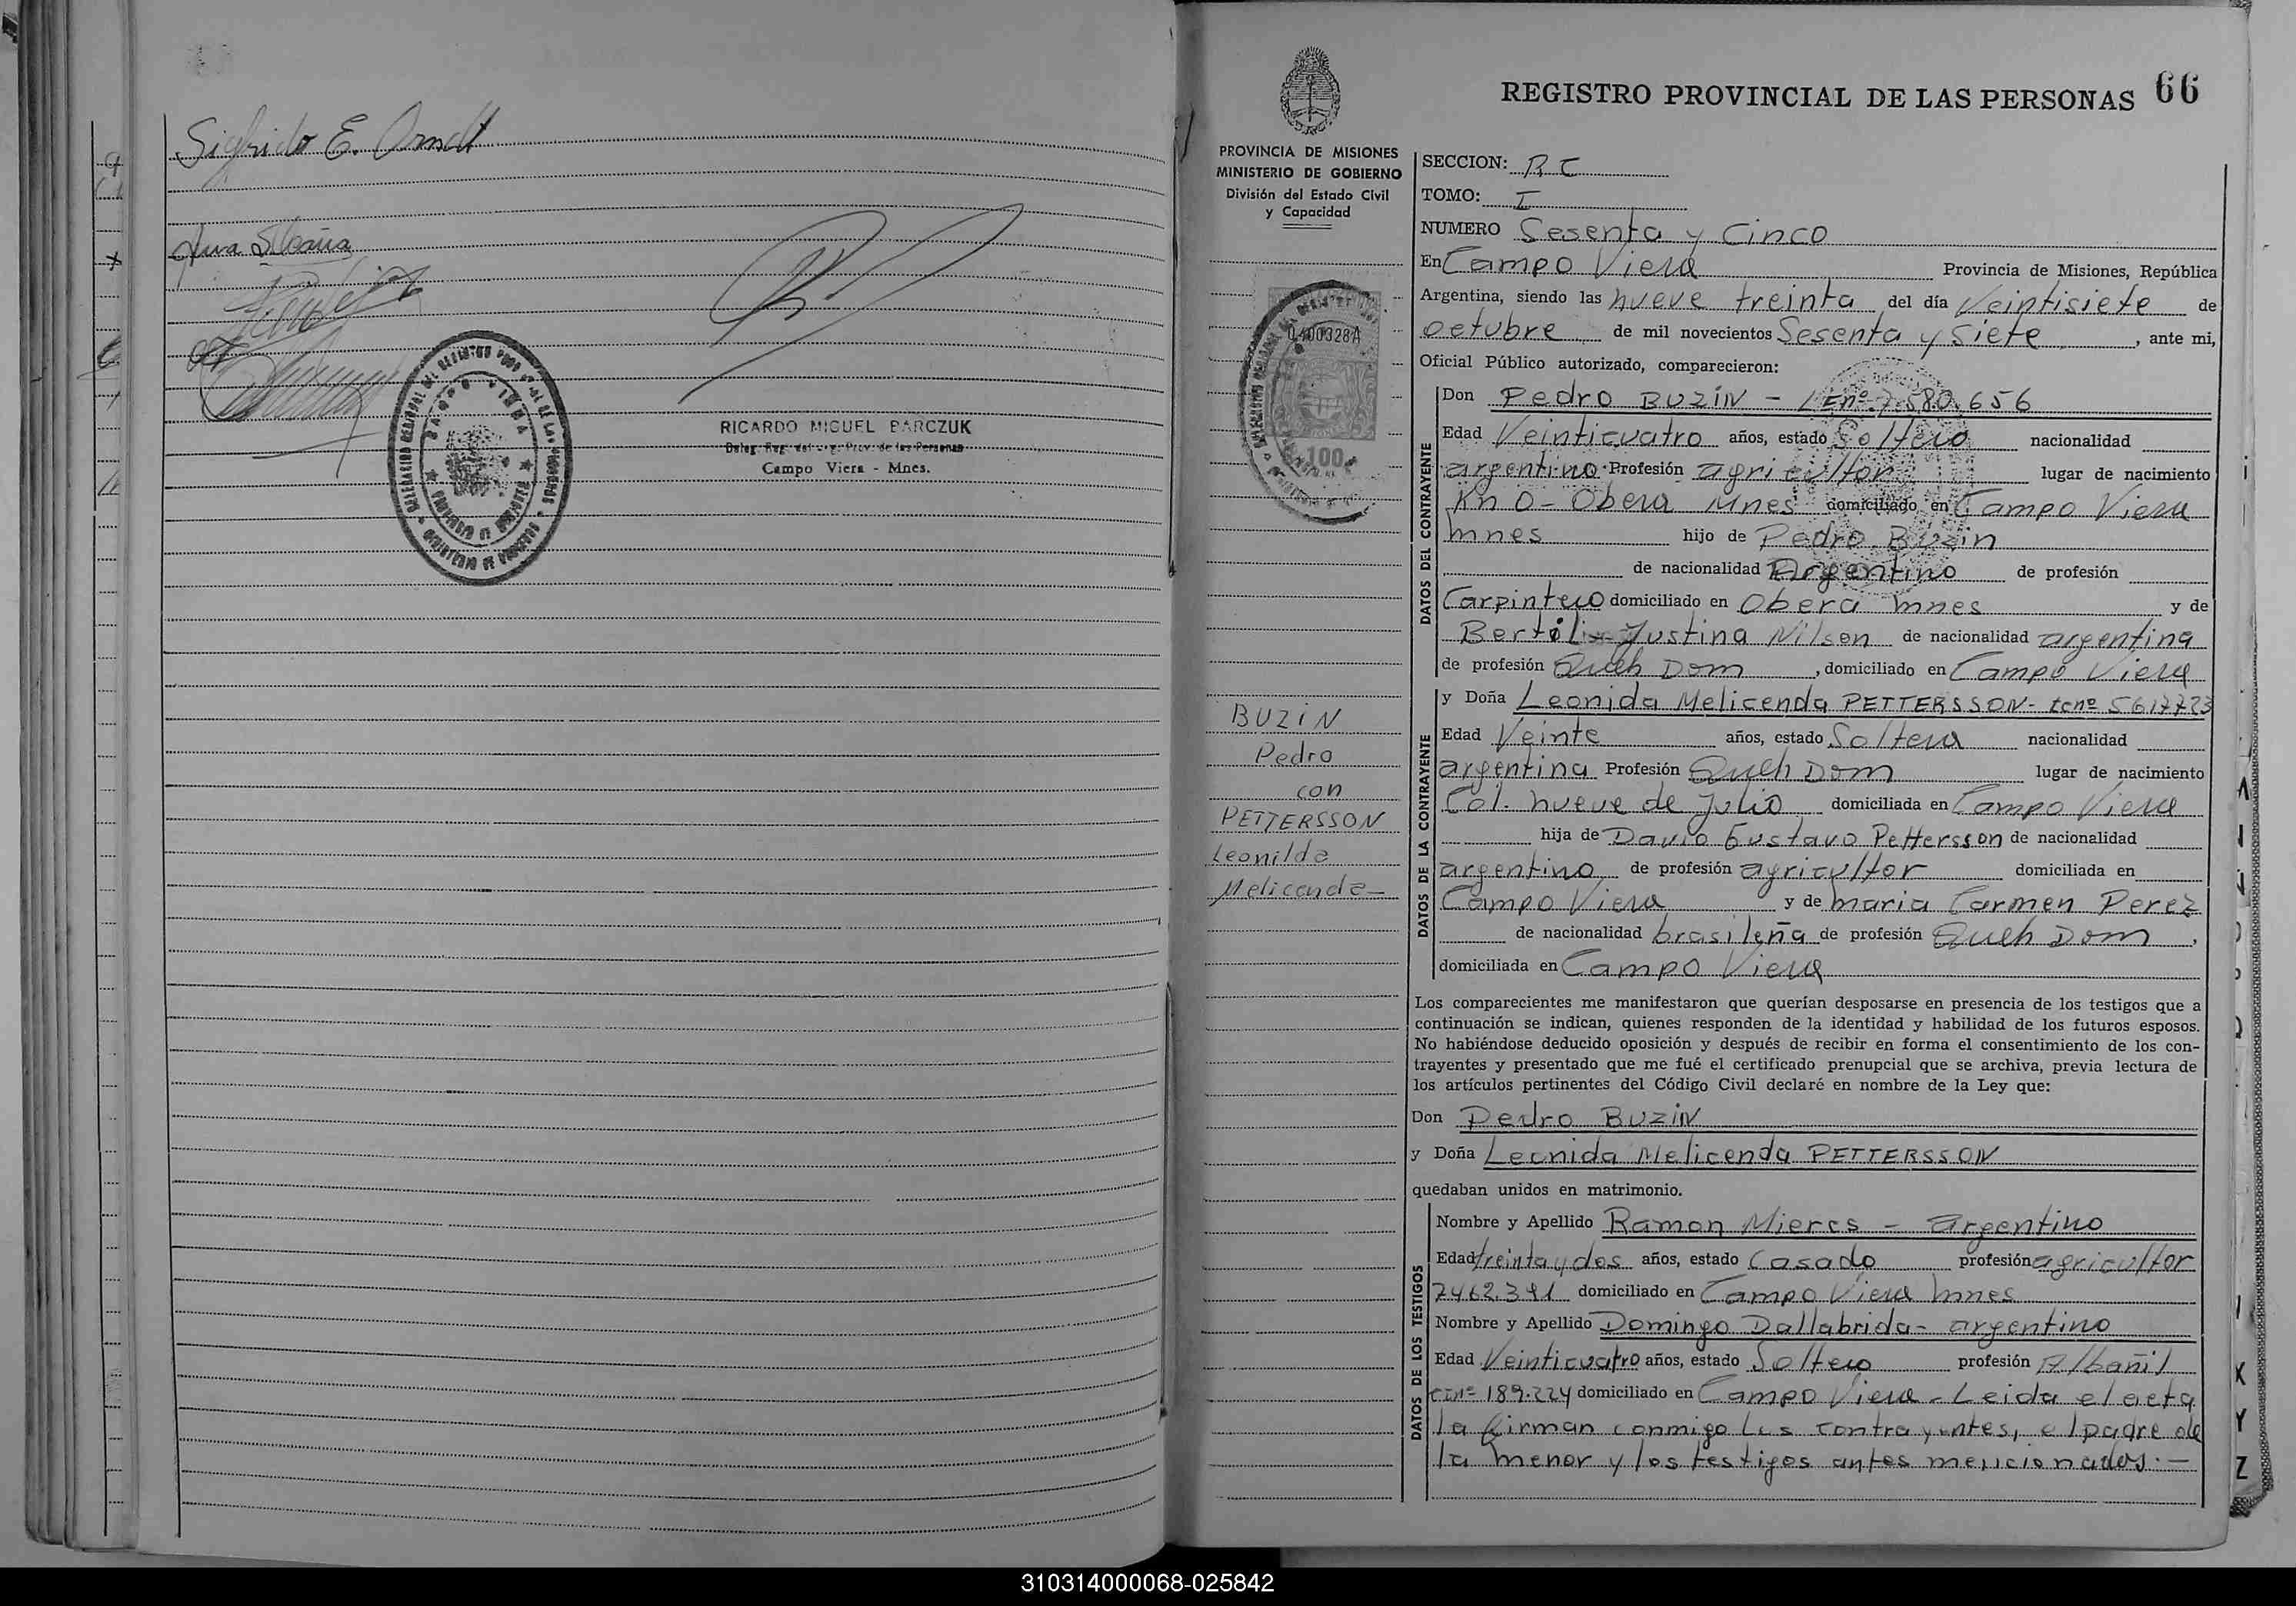 Sigfrido E. Arndt
RICARDO MIGUEL BARCZUK
Deleg. Reg. del Reg. Prov. de las Personas
Campo Viera - Mnes.
REGISTRO PROVINCIAL DE LAS PERSONAS 66
PROVINCIA DE MISIONES
MINISTERIO DE GOBIERNO
División del Estado Civil
y Capacidad
0400328A
100
BUZIN
Pedro
con
PETTERSSON
Leonilda
Melicenda
SECCION: R C
TOMO: I
NUMERO Sesenta y Cinco
En Campo Viera Provincia de Misiones, República
Argentina, siendo las nueve treinta del día Veintisiete de
octubre de mil novecientos Sesenta y Siete, ante mi,
Oficial Público autorizado, comparecieron:
DATOS DEL CONTRAYENTE
Don Pedro BUZIN - LEnº 7.580.656
Edad Veinticuatro años, estado Soltero nacionalidad
argentino Profesión agricultor lugar de nacimiento
Km 0 - Obera Mnes domiciliado en Campo Viera
mnes hijo de Pedro Buzin
de nacionalidad Argentino de profesión
Carpintero domiciliado en Obera mnes y de
Justina Nilson de nacionalidad argentina
de profesión Queh Dom, domiciliado en Campo Viera
DATOS DE LA CONTRAYENTE
y Doña Leonida Melicenda PETTERSSON - lcnº 5617723
Edad Veinte años, estado Soltera nacionalidad
argentina Profesión Queh Dom lugar de nacimiento
Col. nueve de Julio domiciliada en Campo Viera
hija de David Gustavo Pettersson de nacionalidad
argentino de profesión agricultor domiciliada en
Campo Viera y de maria Carmen Perez
de nacionalidad brasileña de profesión Queh Dom,
domiciliada en Campo Viera
Los comparecientes me manifestaron que querían desposarse en presencia de los testigos que a
continuación se indican, quienes responden de la identidad y habilidad de los futuros esposos.
No habiéndose deducido oposición y después de recibir en forma el consentimiento de los con-
trayentes y presentado que me fué el certificado prenupcial que se archiva, previa lectura de
los artículos pertinentes del Código Civil declaré en nombre de la Ley que:
Don Pedro BUZIN
y Doña Leonida Melicenda PETTERSSON
quedaban unidos en matrimonio.
DATOS DE LOS TESTIGOS
Nombre y Apellido Ramon Mieres - argentino
Edad treinta y dos años, estado Casado profesión agricultor
7462.391 domiciliado en Campo Viera mnes
Nombre y Apellido Domingo Dallabrida - argentino
Edad Veinticuatro años, estado Soltero profesión Albañil
cinº 189.224 domiciliado en Campo Viera - Leida el acta
la firman conmigo los contrayentes, el padre de
la menor y los testigos antes mencionados. -
310314000068-025842